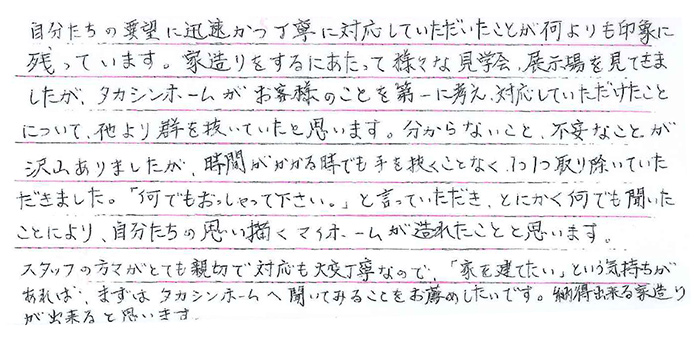 自分たちの要望に迅速かつ丁寧に対応していただいたことが何よりも印象に
残っています。家造りをするにあたって様々な見学会、展示場を見てきま
したが、タカシンホームがお客様のことを第一に考え、対応していただけたこと
について、他より群を抜いていたと思います。分からないこと、不安なことが
沢山ありましたが、時間がかかる時でも手を抜くことなく、1つ1つ取り除いていた
だきました。「何でもおっしゃって下さい。」と言っていただき、とにかく何でも聞いた
ことにより、自分たちの思い描くマイホームが造れたことと思います。
スタッフの方々がとても親切で対応も大変丁寧なので、「家を建てたい」という気持ちが
あれば、まずはタカシンホームへ聞いてみることをお薦めしたいです。納得出来る家造り
が出来ると思います。